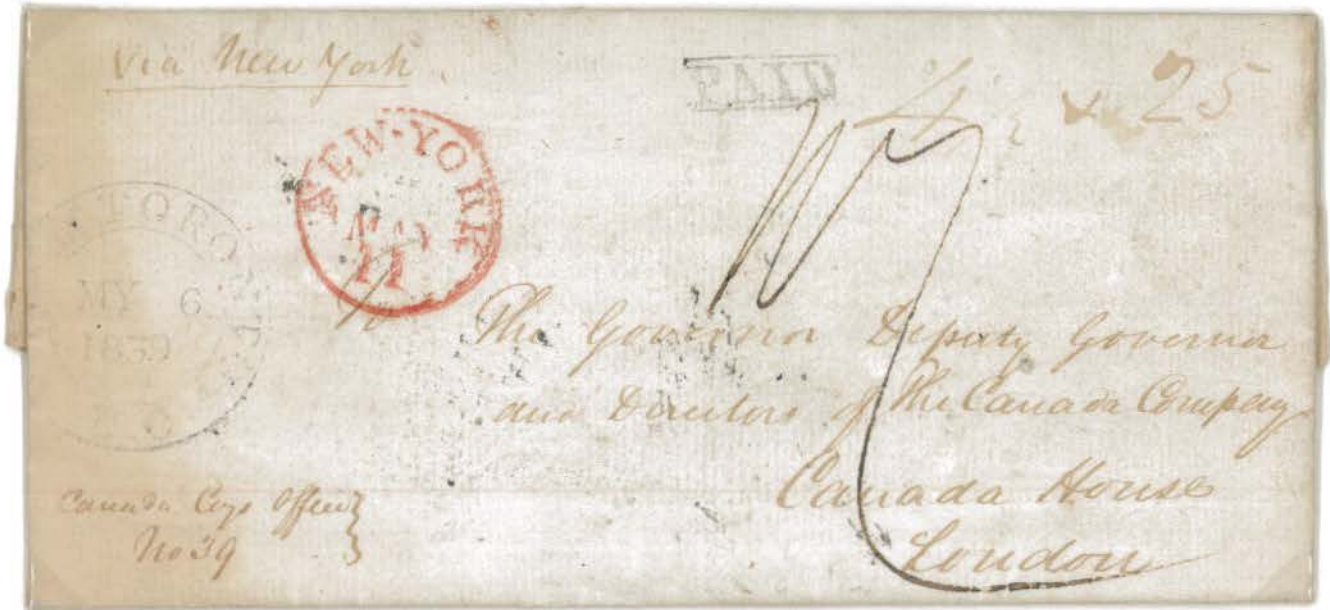 via New York
PAID
4 25
NEW-YORK
MAY
11
TORO
MY 6
1839
To
The Governor Deputy Governor
and Directors of The Canada Company
Canada House
London
Canada Coys Office
No 39